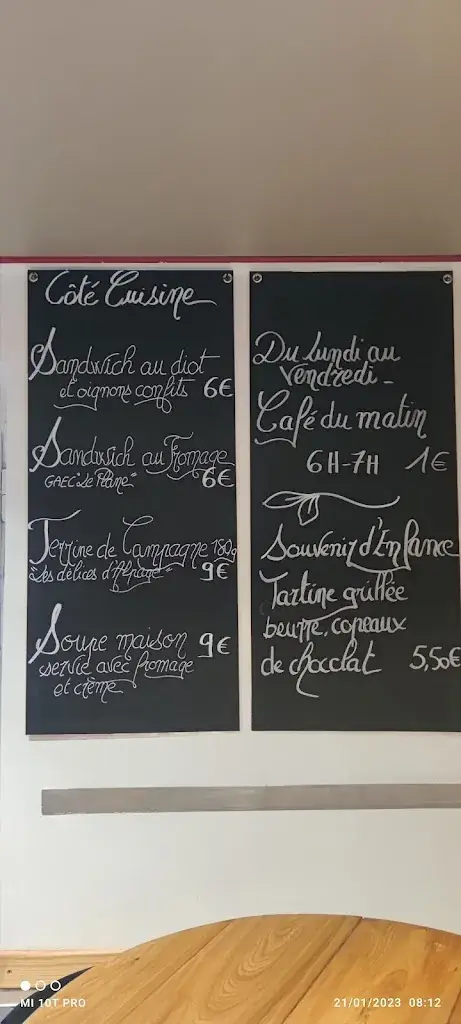 Côté Cuisine
Sandwich au diot
et oignons confits 6€
Sandwich au Fromage
GAEC "Le Plane" 6€
Terrine de Campagne 180g
"Les délices d'Alpage" 9€
Soupe maison 9€
servie avec fromage
et crème
Du lundi au
Vendredi -
Café du matin
6H-7H 1€
Souvenir d'Enfance
Tartine grillée
beurre, copeaux
de chocolat 5,50€
MI 10T PRO
21/01/2023 08:12